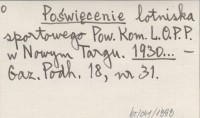 o Poświęcenie lotniska
sportowego Pow. Kom. L.O.P.P.
w Nowym Targu. 1930... -
Gaz. Podh. 18, nr 31.